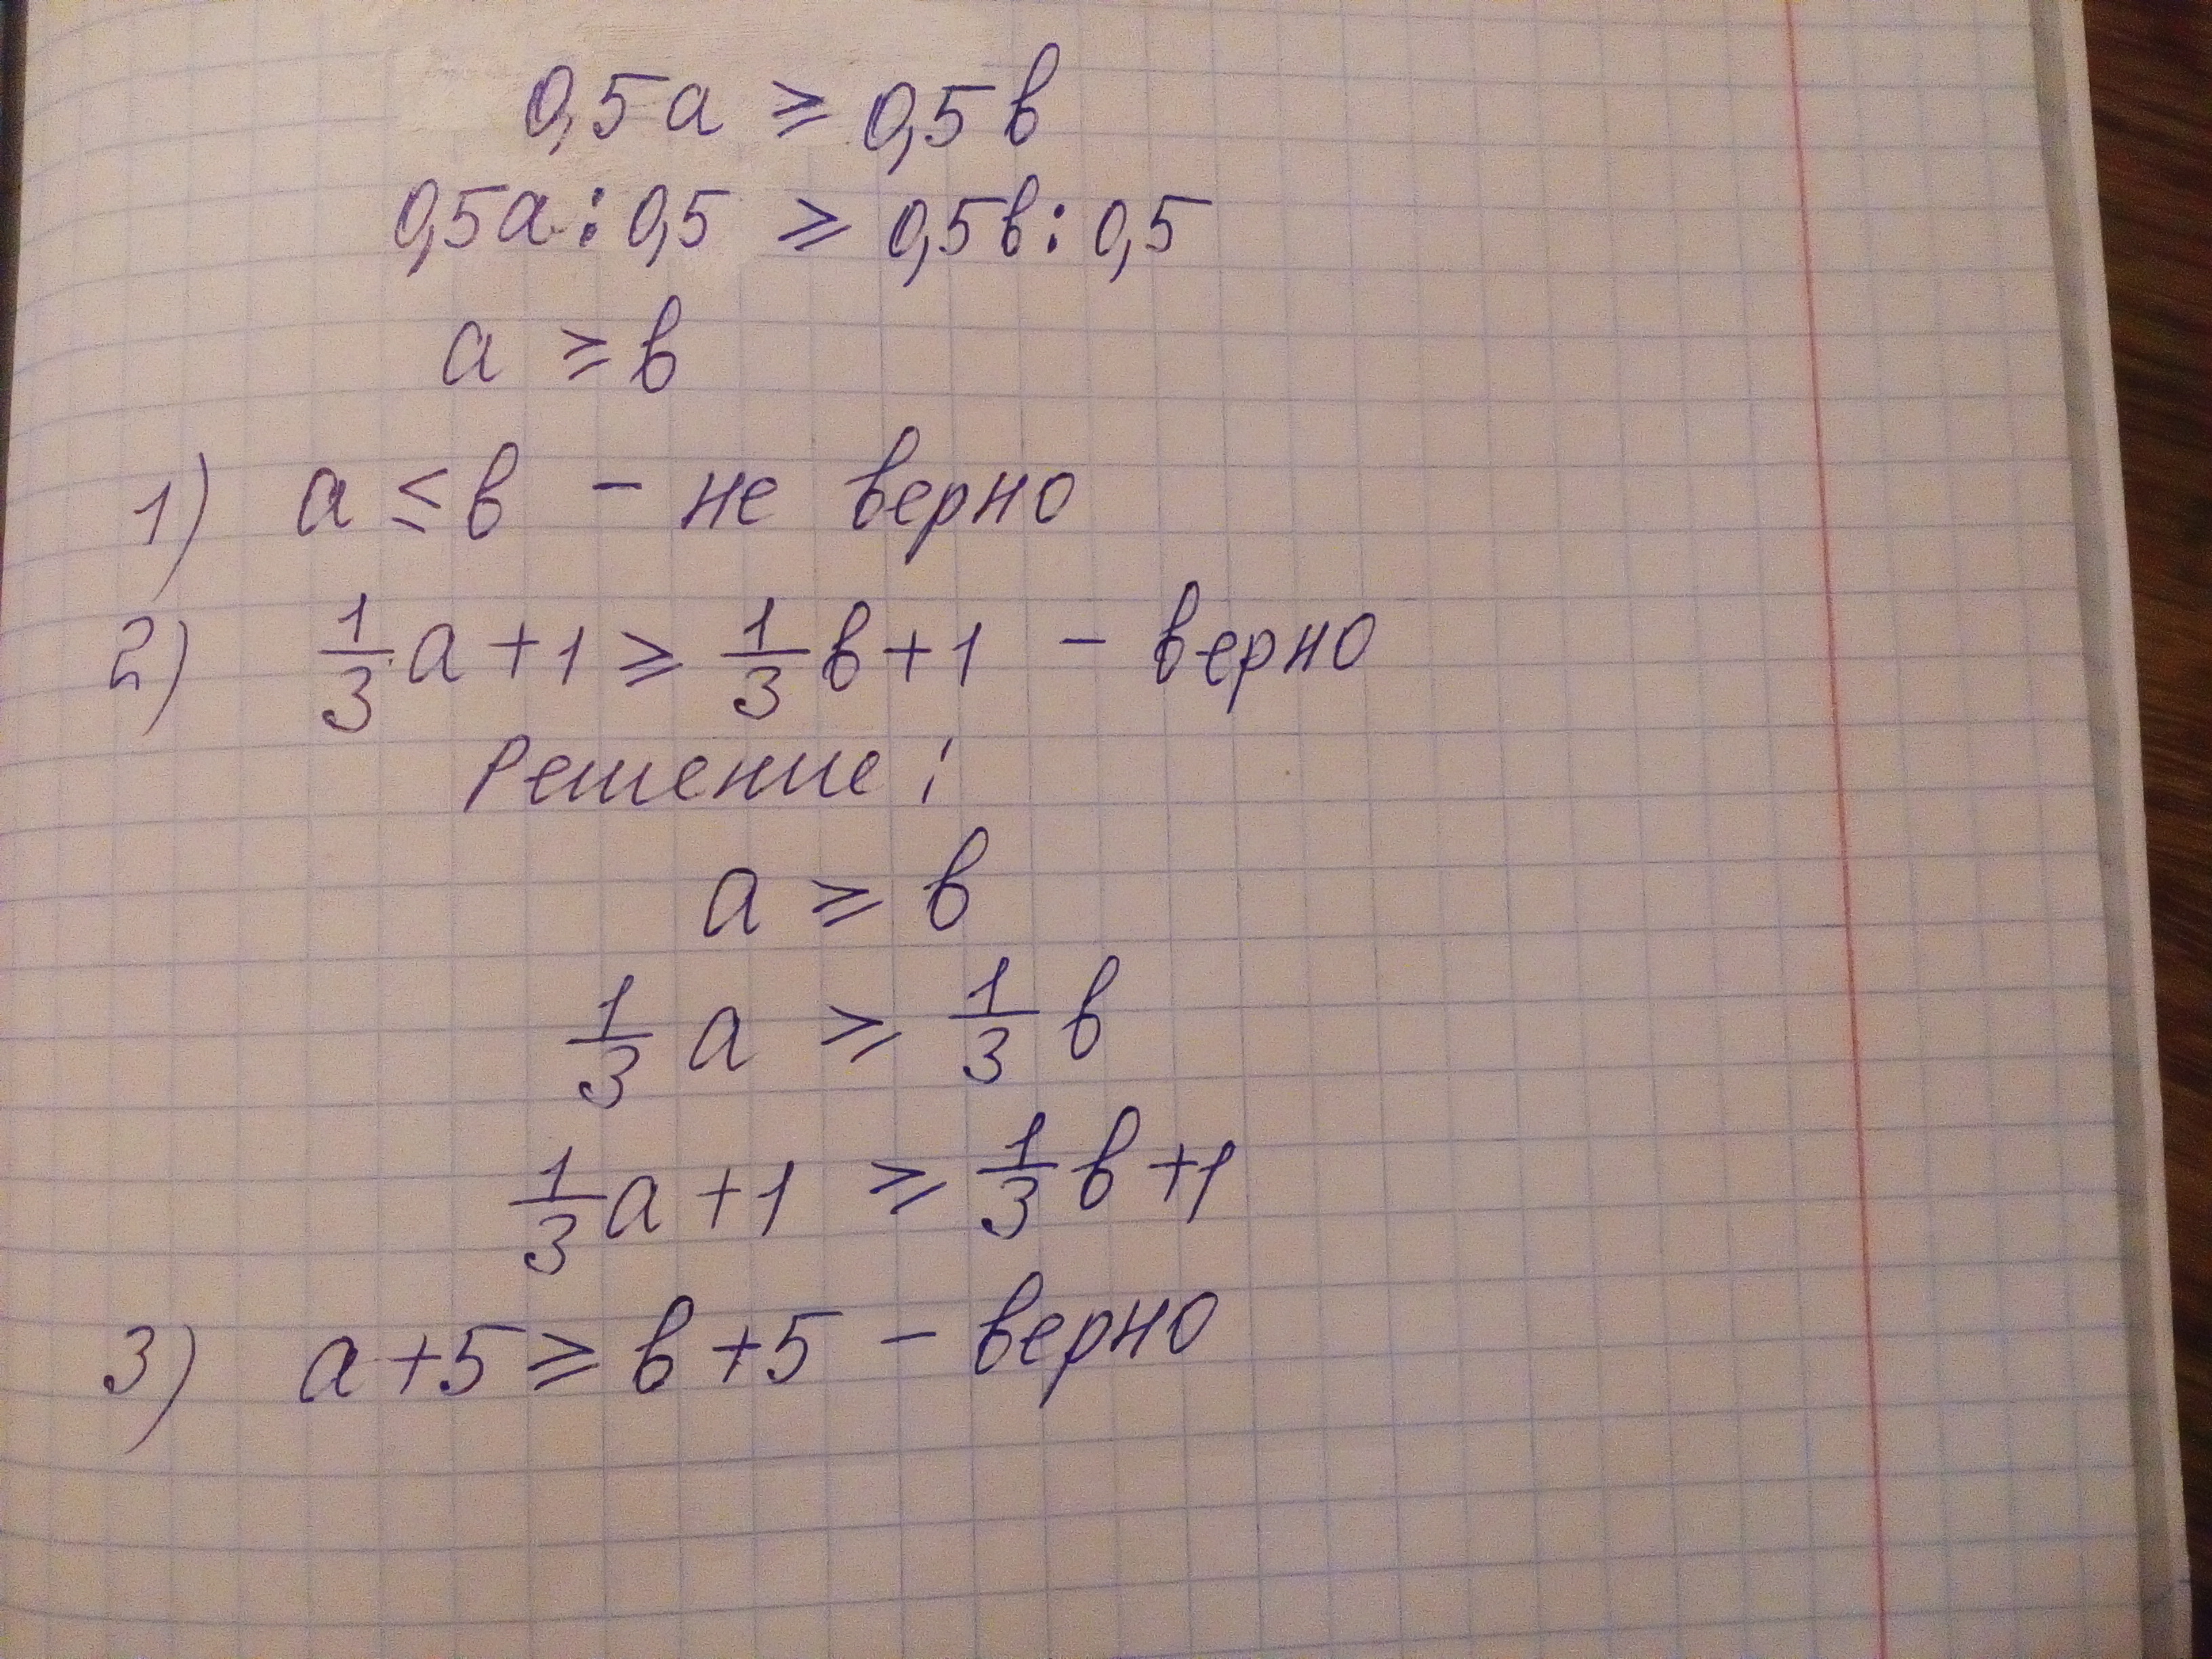 0,5а ≥ 0,5в
0,5а : 0,5 ≥ 0,5в : 0,5
а ≥ в
1) а ≤ в - не верно
2) 1/3 а + 1 ≥ 1/3 в + 1 - верно
Решение:
а ≥ в
1/3 а ≥ 1/3 в
1/3 а + 1 ≥ 1/3 в + 1
3) а + 5 ≥ в + 5 - верно